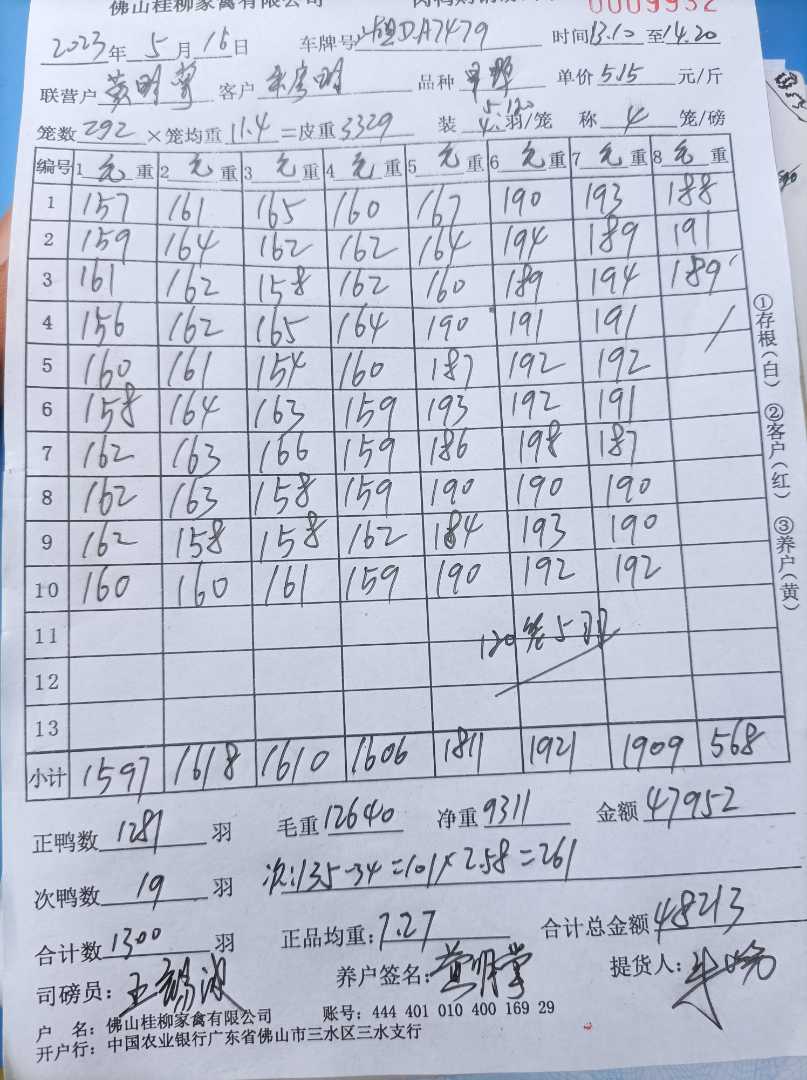 佛山桂柳家禽有限公司 0009932
2023年5月16日 车牌号 DA7479 时间13.10至14.20
联营户 黄明掌 客户 品种 单价5.15元/斤
笼数292×笼均重11.4=皮重3329 装5.120 4.羽/笼 称4笼/磅
编号 1元重 2元重 3元重 4元重 5元重 6元重 7元重 8元重
1 157 161 165 160 167 190 193 188
2 159 164 162 162 164 194 189 191
3 161 162 158 162 160 189 194 189
4 156 162 165 164 190 191 191
5 160 161 154 160 187 192 192
6 158 164 163 159 193 192 191
7 162 163 166 159 186 198 187
8 162 163 158 159 190 190 190
9 162 158 158 162 184 193 190
10 160 160 161 159 190 192 192
11 120笼5羽
12
13
小计 1597 1618 1610 1606 1811 1921 1909 568
正鸭数1281羽 毛重12640 净重9311 金额47952
次鸭数19羽 次:135-34=101×2.58=261
合计数1300羽 正品均重:7.27 合计总金额48213
司磅员: 养户签名:黄明掌 提货人:
户 名:佛山桂柳家禽有限公司 账号:444 401 010 400 169 29
开户行:中国农业银行广东省佛山市三水区三水支行
①存根(白) ②客户(红) ③养户(黄)